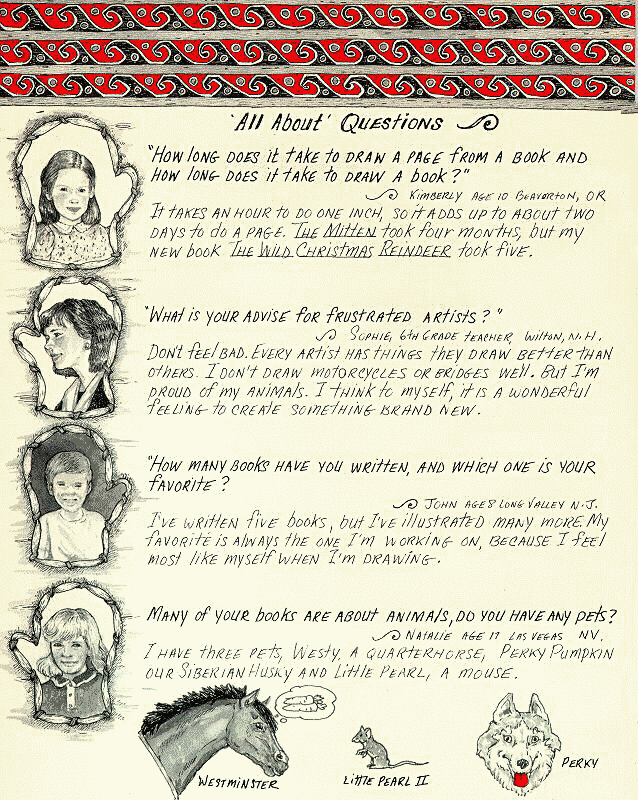 'All About' Questions
"How long does it take to draw a page from a book and
how long does it take to draw a book?"
Kimberly age 10 Beaverton, OR
It takes an hour to do one inch, so it adds up to about two
days to do a page. The Mitten took four months, but my
new book The Wild Christmas Reindeer took five.
"What is your advise for frustrated artists?"
Sophie, 6th grade teacher, Wilton, N.H.
Don't feel bad. Every artist has things they draw better than
others. I don't draw motorcycles or bridges well. But I'm
proud of my animals. I think to myself, it is a wonderful
feeling to create something brand new.
"How many books have you written, and which one is your
favorite?
John age 8 Long Valley N.J.
I've written five books, but I've illustrated many more. My
favorite is always the one I'm working on, because I feel
most like myself when I'm drawing.
Many of your books are about animals, do you have any pets?
Natalie age 17 Las Vegas NV.
I have three pets, Westy, a quarterhorse, Perky Pumpkin
our Siberian Husky and Little Pearl, a mouse.
Westminster
Little Pearl II
Perky